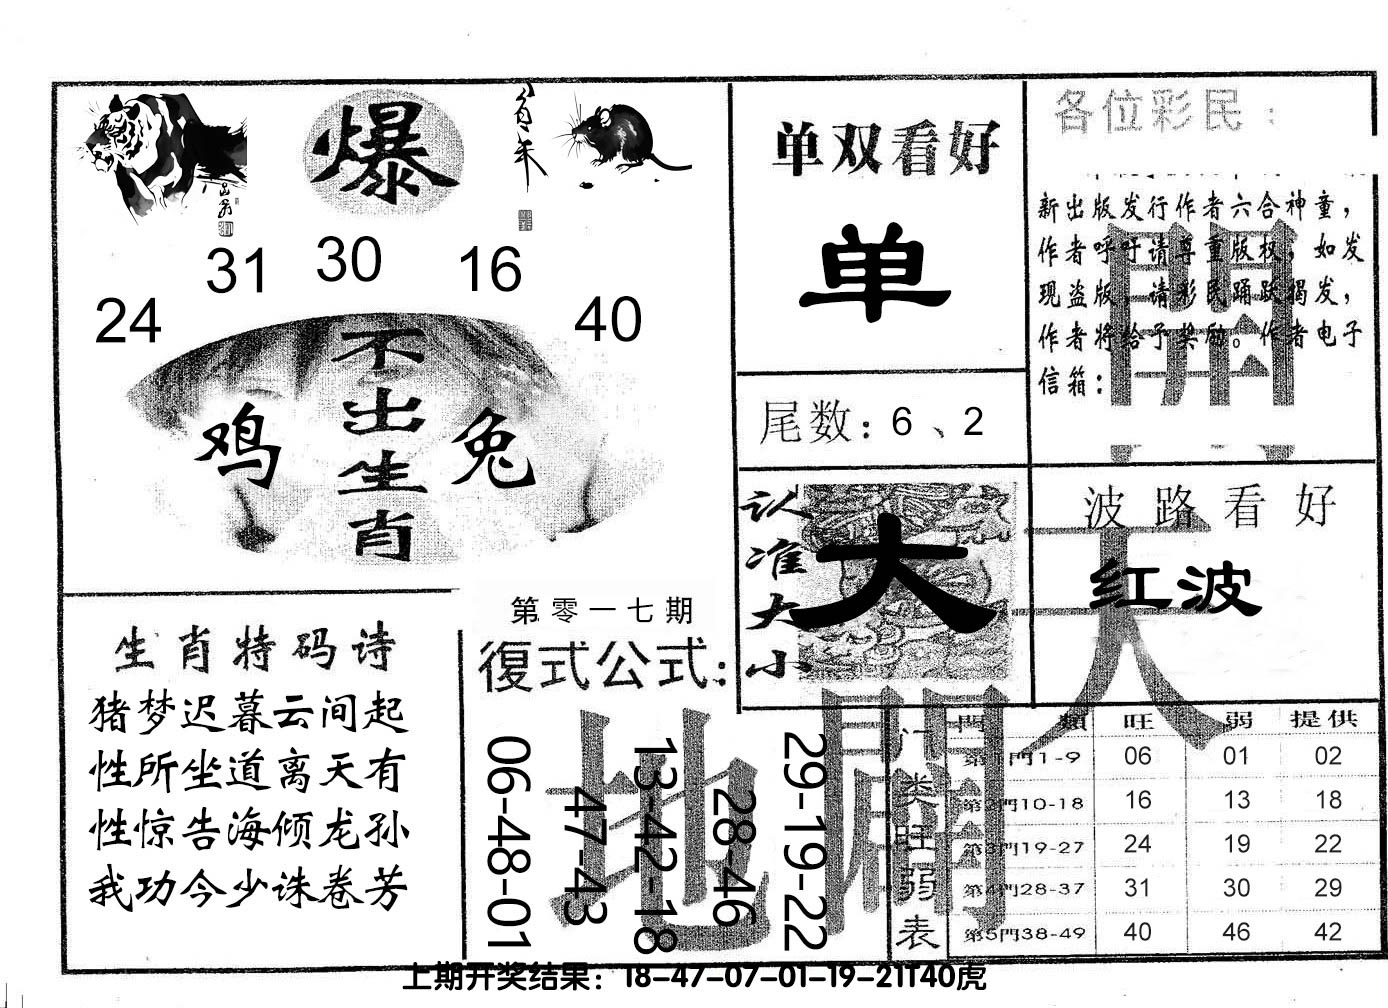 爆
31 30 16
24 40
不出生肖
鸡 兔
单双看好
单
尾数：6、2
各位彩民：
新出版发行作者六合神童，
作者呼吁请尊重版权，如发
现盗版，请彩民踊跃揭发，
作者将给予奖励。作者电子
信箱：
認准大小
大
波路看好
红波
生肖特码诗
猪梦迟暮云间起
性所坐道离天有
性惊告海倾龙孙
我功今少诛卷芳
第零一七期
復式公式：
06-48-01
47-43
13-42-18
28-46
29-19-22
天
地
開
门类旺弱表
門類 旺 弱 提供
第1門1-9 06 01 02
第2門10-18 16 13 18
第3門19-27 24 19 22
第4門28-37 31 30 29
第5門38-49 40 46 42
上期开奖结果：18-47-07-01-19-21T40虎